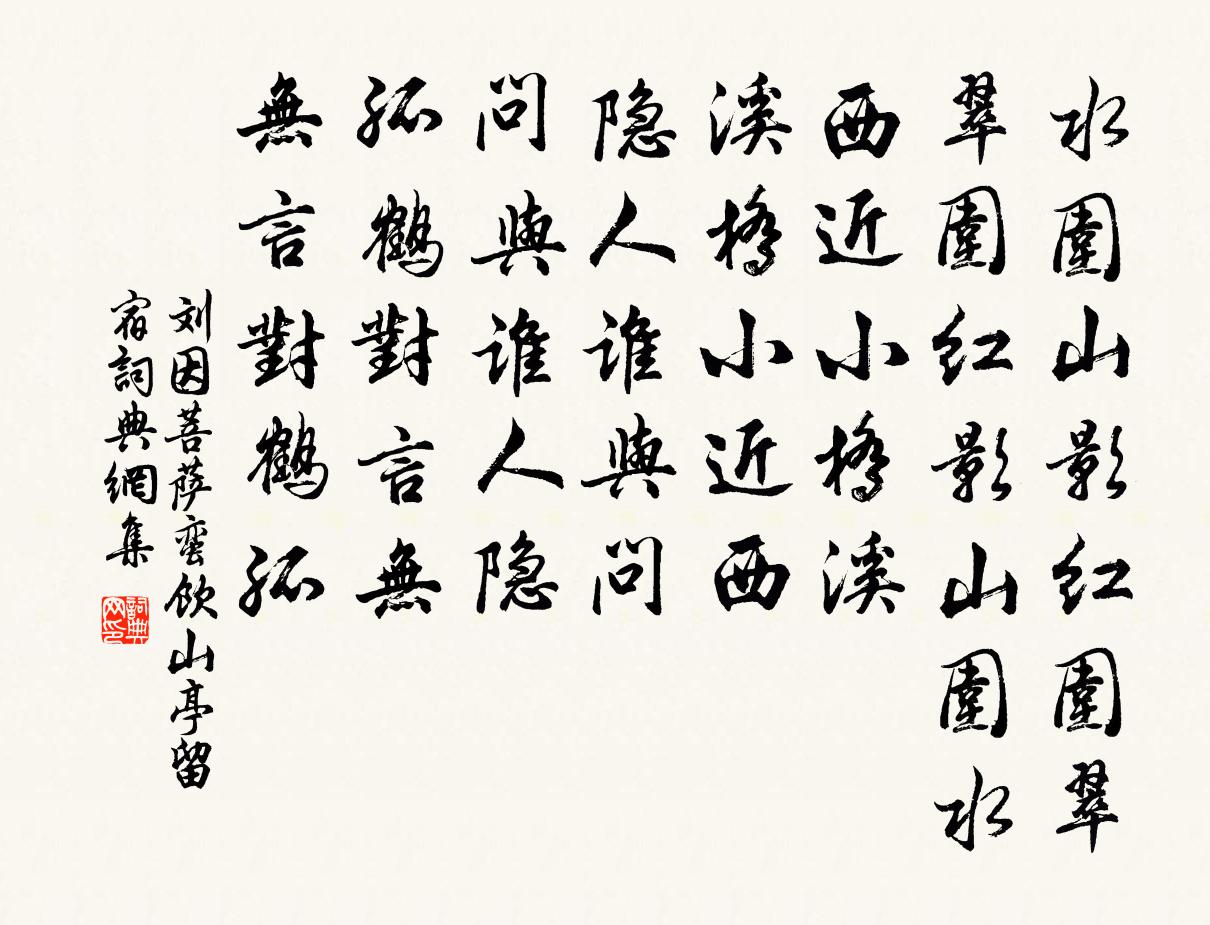 水圍山影紅圍翠
翠圍紅影山圍水
西近小橋溪
溪橋小近西
隐人誰與問
問與誰人隐
孤鶴對言無
無言對鶴孤
刘因菩萨蛮飲山亭留
宿詞典網集
詞典
网印